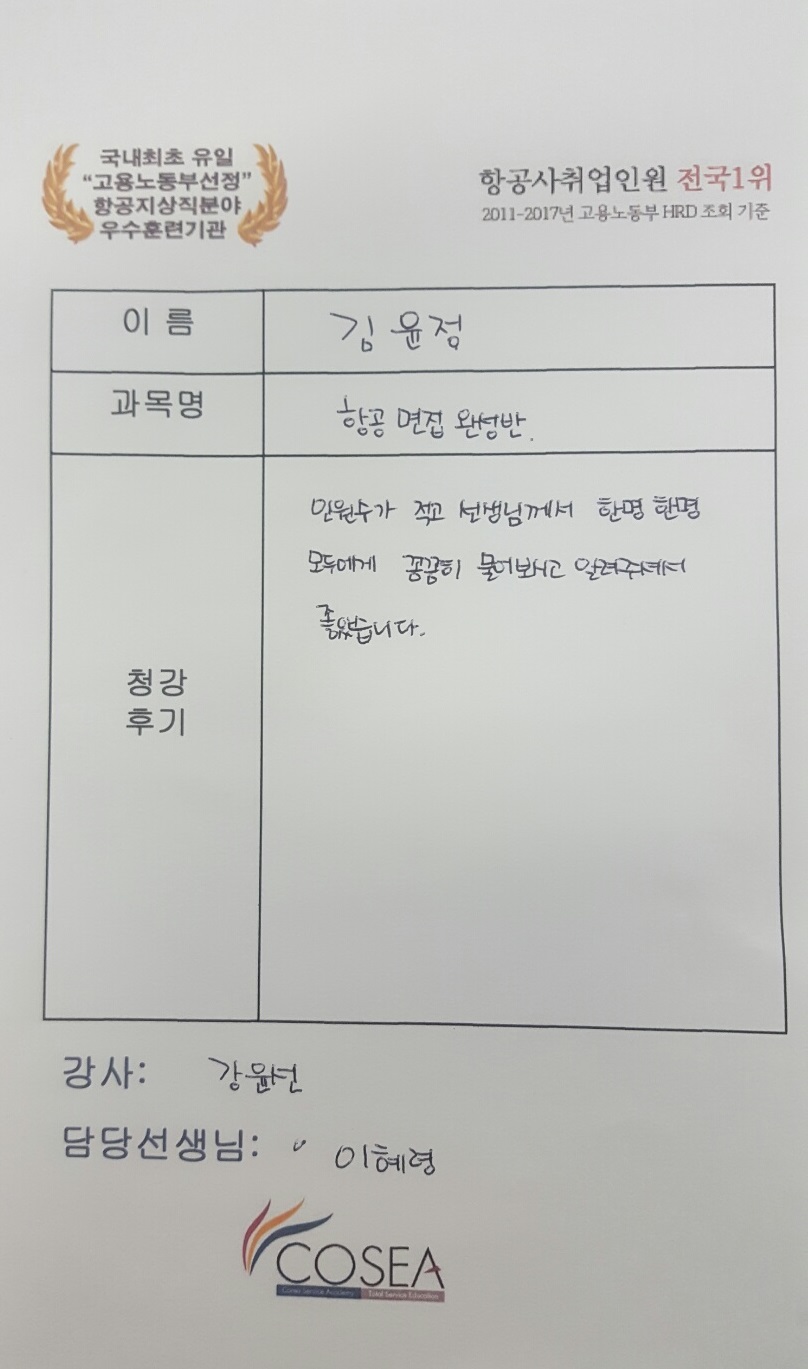 국내최초 유일
“고용노동부선정”
항공지상직분야
우수훈련기관
항공사취업인원 전국1위
2011-2017년 고용노동부 HRD 조회 기준
이 름
김 윤정
과목명
항공 면접 완성반.
인원수가 적고 선생님께서 한명 한명
모두에게 꼼꼼히 물어보시고 알려주셔서
좋았습니다.
청강
후기
강사: 강윤선
담당선생님: 이혜령
COSEA
Cosea Service Academy Total Service Education